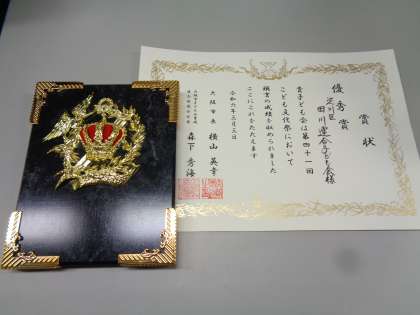 賞状
優秀賞
淀川区
田川連合子ども会様
貴子ども会は第四十一回
こども文化祭において
頭書の成績を収められました
ここにこれをたたえます
令和六年三月三日
大阪市長 横山英幸
森下秀海